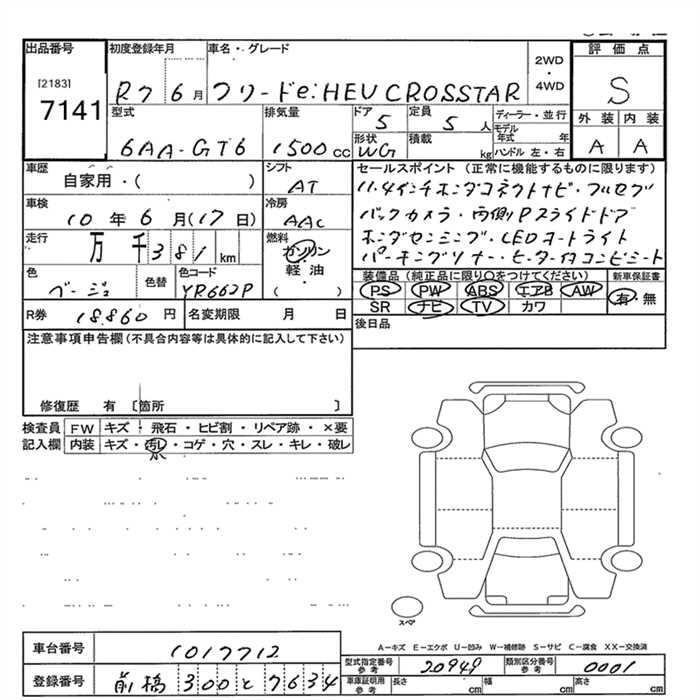 出品番号 初度登録年月 車名・グレード 評価点
[2183] 2WD
7141 R7 6月 フリードe:HEV CROSSTAR ・ S
4WD
型式 排気量 ドア 定員 ディーラー・並行 外装 内装
6AA-GT6 1500cc 5 5人 モデル年式 年 A A
形状 積載 ハンドル 左・右
WG kg
車歴 シフト セールスポイント(正常に機能するものに限ります)
自家用・( ) AT 11.4インチホンダコネクトナビ・フルセグ
車検 冷房 バックカメラ・両側Pスライドドア
10年6月(17日) AAC ホンダセンシング・LEDオートライト
走行 燃料 パーキングソナー・ヒーター付コンビシート
万 千381km ガソリン
軽油
( )
色 色替 色コード 装備品(純正品に限り○をつけてください) 新車保証書
ベージュ YR662P PS PW ABS エアB AW 有・無
SR ナビ TV カワ
R券 18,860円 名変期限 月 日 後日品
注意事項申告欄(不具合内容等は具体的に記入して下さい)
修復歴 有 〔箇所 〕
検査員 FW キズ・飛石・ヒビ割・リペア跡・×要
記入欄 内装 キズ・汚れ・コゲ・穴・スレ・キレ・破レ
小
スペア
A-キズ E-エクボ U-凹み W-補修跡 S-サビ C-腐食 XX-交換済
車台番号 1017712
型式指定番号 参考 20949 類別区分番号 参考 0001
登録番号 前橋 300 と 7634
車庫証明用 参考 長さ cm 幅 cm 高さ cm